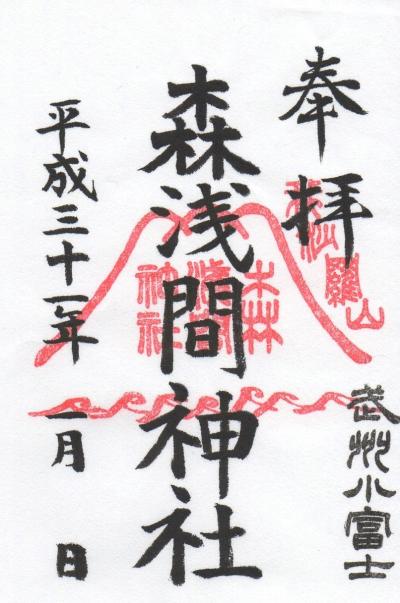 奉拝
武州小富士
森浅間神社
森浅間神社
平成三十一年 一月 日